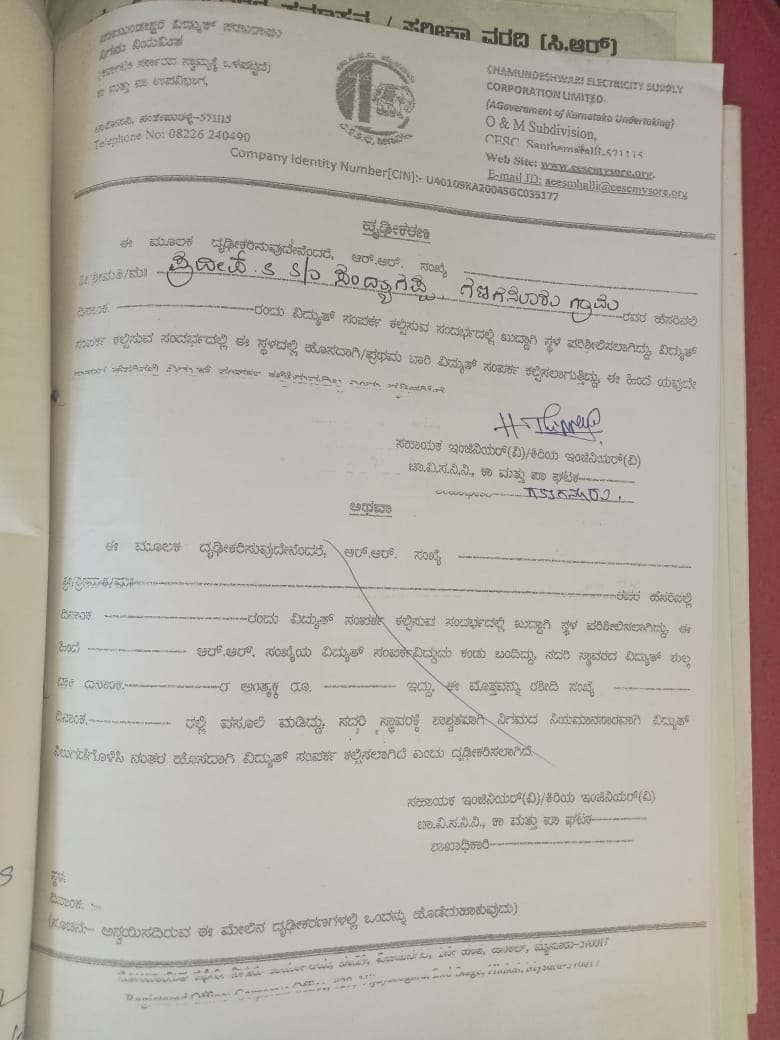 ಪರೀಕ್ಷಾ ವರದಿ (ಸಿ.ಆರ್)
ಚಾಮುಂಡೇಶ್ವರಿ ವಿದ್ಯುತ್ ಸರಬರಾಜು
ನಿಗಮ ನಿಯಮಿತ
(ಕರ್ನಾಟಕ ಸರ್ಕಾರದ ಸ್ವಾಮ್ಯಕ್ಕೆ ಒಳಪಟ್ಟಿದೆ)
ಕಾ ಮತ್ತು ಪಾ ಉಪವಿಭಾಗ,
ಚಾವಿಸನಿನಿ, ಸಂತೇಮರಳ್ಳಿ-571115
Telephone No: 08226 240490
CHAMUNDESHWARI ELECTRICITY SUPPLY
CORPORATION LIMITED.
(A Government of Karnataka Undertaking)
O & M Subdivision,
CESC, Santhemaralli-571115
Web Site: www.cescmysore.org.
E-mail ID: aeesmhalli@cescmysore.org
Company Identity Number[CIN]:- U40109KA2004SGC035177
ದೃಢೀಕರಣ
ಈ ಮೂಲಕ ದೃಢೀಕರಿಸುವುದೇನೆಂದರೆ, ಆರ್.ಆರ್. ಸಂಖ್ಯೆ
S S/o ಗ್ರಾಮ ರವರ ಹೆಸರಿನಲ್ಲಿ
ದಿನಾಂಕ. ರಂದು ವಿದ್ಯುತ್ ಸಂಪರ್ಕ ಕಲ್ಪಿಸುವ ಸಂದರ್ಭದಲ್ಲಿ ಖುದ್ದಾಗಿ ಸ್ಥಳ ಪರಿಶೀಲಿಸಲಾಗಿದ್ದು, ವಿದ್ಯುತ್
ಸಂಪರ್ಕ ಕಲ್ಪಿಸುವ ಸಂದರ್ಭದಲ್ಲಿ ಈ ಸ್ಥಳದಲ್ಲಿ ಹೊಸದಾಗಿ/ಪ್ರಥಮ ಬಾರಿ ವಿದ್ಯುತ್ ಸಂಪರ್ಕ ಕಲ್ಪಿಸಲಾಗುತ್ತಿದ್ದು, ಈ ಹಿಂದೆ ಯಾವುದೇ
ಸಹಾಯಕ ಇಂಜಿನಿಯರ್(ವಿ)/ಕಿರಿಯ ಇಂಜಿನಿಯರ್(ವಿ)
ಚಾ.ವಿ.ಸ.ನಿ.ನಿ., ಕಾ ಮತ್ತು ಪಾ ಘಟಕ
ಅಥವಾ
ಈ ಮೂಲಕ ದೃಢೀಕರಿಸುವುದೇನೆಂದರೆ, ಆರ್.ಆರ್. ಸಂಖ್ಯೆ
ರವರ ಹೆಸರಿನಲ್ಲಿ
ದಿನಾಂಕ. ರಂದು ವಿದ್ಯುತ್ ಸಂಪರ್ಕ ಕಲ್ಪಿಸುವ ಸಂದರ್ಭದಲ್ಲಿ ಖುದ್ದಾಗಿ ಸ್ಥಳ ಪರಿಶೀಲಿಸಲಾಗಿದ್ದು, ಈ
ಹಿಂದೆ ಆರ್.ಆರ್. ಸಂಖ್ಯೆಯ ವಿದ್ಯುತ್ ಸಂಪರ್ಕವಿದ್ದುದು ಕಂಡು ಬಂದಿದ್ದು, ಸದರಿ ಸ್ಥಾವರದ ವಿದ್ಯುತ್ ಶುಲ್ಕ
ಬಾಕಿ ದಿನಾಂಕ. ರ ಅಂತ್ಯಕ್ಕೆ ರೂ. ಇದ್ದು, ಈ ಮೊತ್ತವನ್ನು ರಶೀದಿ ಸಂಖ್ಯೆ
ದಿನಾಂಕ. ರಲ್ಲಿ ವಸೂಲಿ ಮಾಡಿದ್ದು, ಸದ್ಯರಿ ಸ್ಥಾವರಕ್ಕೆ ಶಾಶ್ವತವಾಗಿ ನಿಗಮದ ನಿಯಮಾನುಸಾರವಾಗಿ ವಿದ್ಯುತ್
ನಿಲುಗಡೆಗೊಳಿಸಿ ನಂತರ ಹೊಸದಾಗಿ ವಿದ್ಯುತ್ ಸಂಪರ್ಕ ಕಲ್ಪಿಸಲಾಗಿದೆ ಎಂದು ದೃಢೀಕರಿಸಲಾಗಿದೆ.
ಸಹಾಯಕ ಇಂಜಿನಿಯರ್(ವಿ)/ಕಿರಿಯ ಇಂಜಿನಿಯರ್(ವಿ)
ಚಾ.ವಿ.ಸ.ನಿ.ನಿ., ಕಾ ಮತ್ತು ಪಾ ಘಟಕ
ಶಾಖಾಧಿಕಾರಿ
ಸ್ಥಳ:
ದಿನಾಂಕ :
(ಸೂಚನೆ:- ಅನ್ವಯಿಸದಿರುವ ಈ ಮೇಲಿನ ದೃಢೀಕರಣಗಳಲ್ಲಿ ಒಂದನ್ನು ಹೊಡೆದುಹಾಕುವುದು)